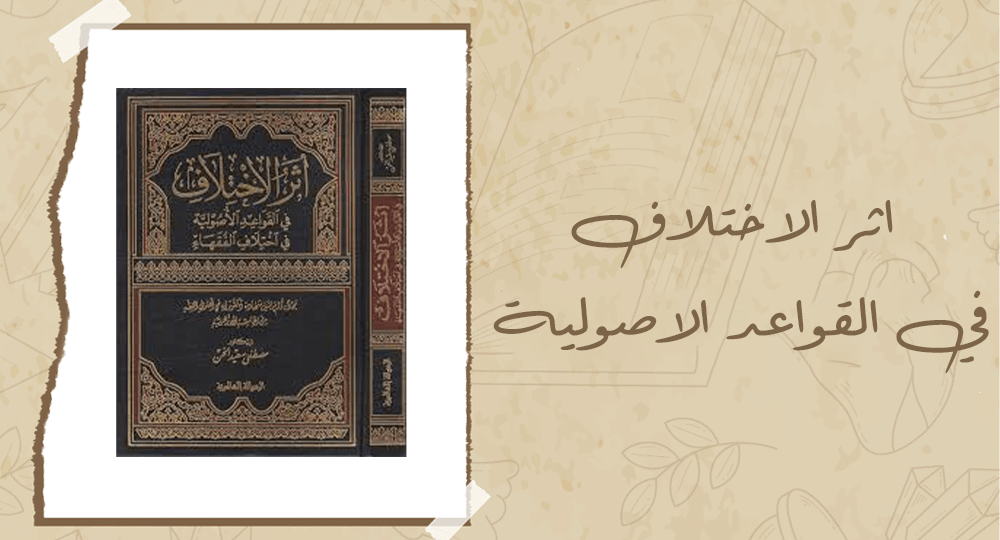 اثر الاختلاف
في القواعد الاصولية
أثر الاختلاف
في القواعد الأصولية
في اختلاف الفقهاء
مصطفى سعيد الخن
الرسالة العالمية